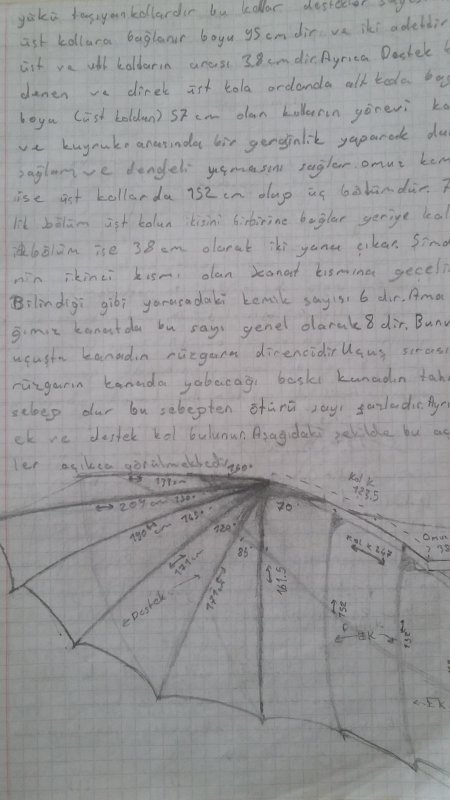 yükü taşıyan kollardır bu kollar destekler
üst kollara bağlanır boyu 95 cm dir. ve iki adettir
üst ve alt kolların arası 38 cm dir. Ayrıca Destek
denen ve direk üst kola ordanda alt kola
boyu (üst koldan) 57 cm olan kolların görevi
ve kuyruk arasında bir gerginlik yaparak
sağlam ve dengeli uçmasını sağlar. omuz
ise üst kollarda 152 cm olup üç bölümdür.
lik bölüm üst kolun ikisini birbirine bağlar geriye
iki bölüm ise 38 cm olarak iki yana çıkar.
nin ikinci kısmı olan kanat kısmına
Bilindiği gibi yarasadaki kemik sayısı 6 dır. Ama
ğımız kanatda bu sayı genel olarak 8 dir.
uçuşta kanadın rüzgara direncidir Uçuş
rüzgarın kanada yabacağı baskı kanadın
sebep olur bu sebepten ötürü sayı fazladır.
ek ve destek kol bulunur. Aşağıdaki şekilde bu
ler açıkca görülmektedir.
160°
Kol K
123.5
204 cm
150°
190 cm
145°
120°
70°
85°
171 cm
Destek
161.5
Kol K 247
152
EK
152
EK